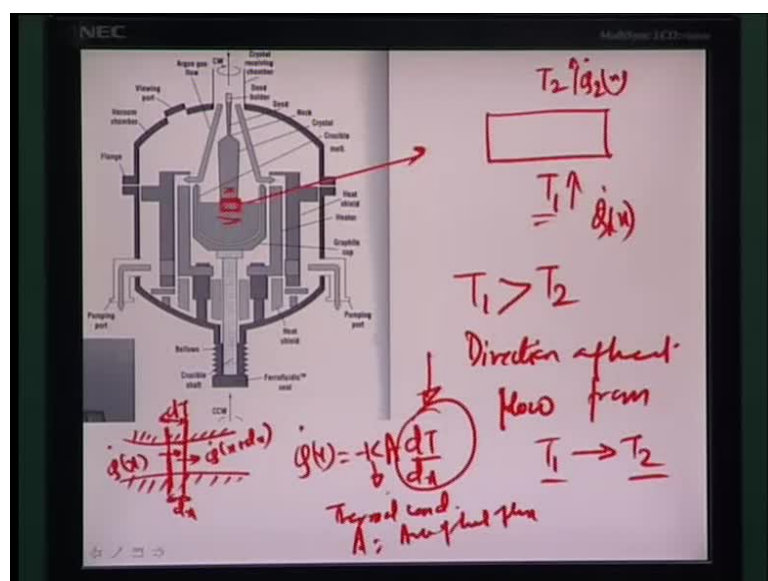 NEC
MultiSync LCD
Argon gas flow
CW
Crystal receiving chamber
Seed holder
Seed
Neck
Crystal
Crucible
melt
Viewing port
Vacuum chamber
Flange
Heat shield
Heater
Graphite cup
Pumping port
Pumping port
Heat shield
Bellows
Crucible shaft
Ferrofluidic™ seal
CCW
T2 ↑ q̇2(x)
T1 ↑ q̇1(x)
T1 > T2
Direction of heat
flow from
T1 → T2
dT
q̇(x)
q̇(x+dx)
dx
q̇(x) = -KA dT/dx
Thermal cond
A: Area of heat flux